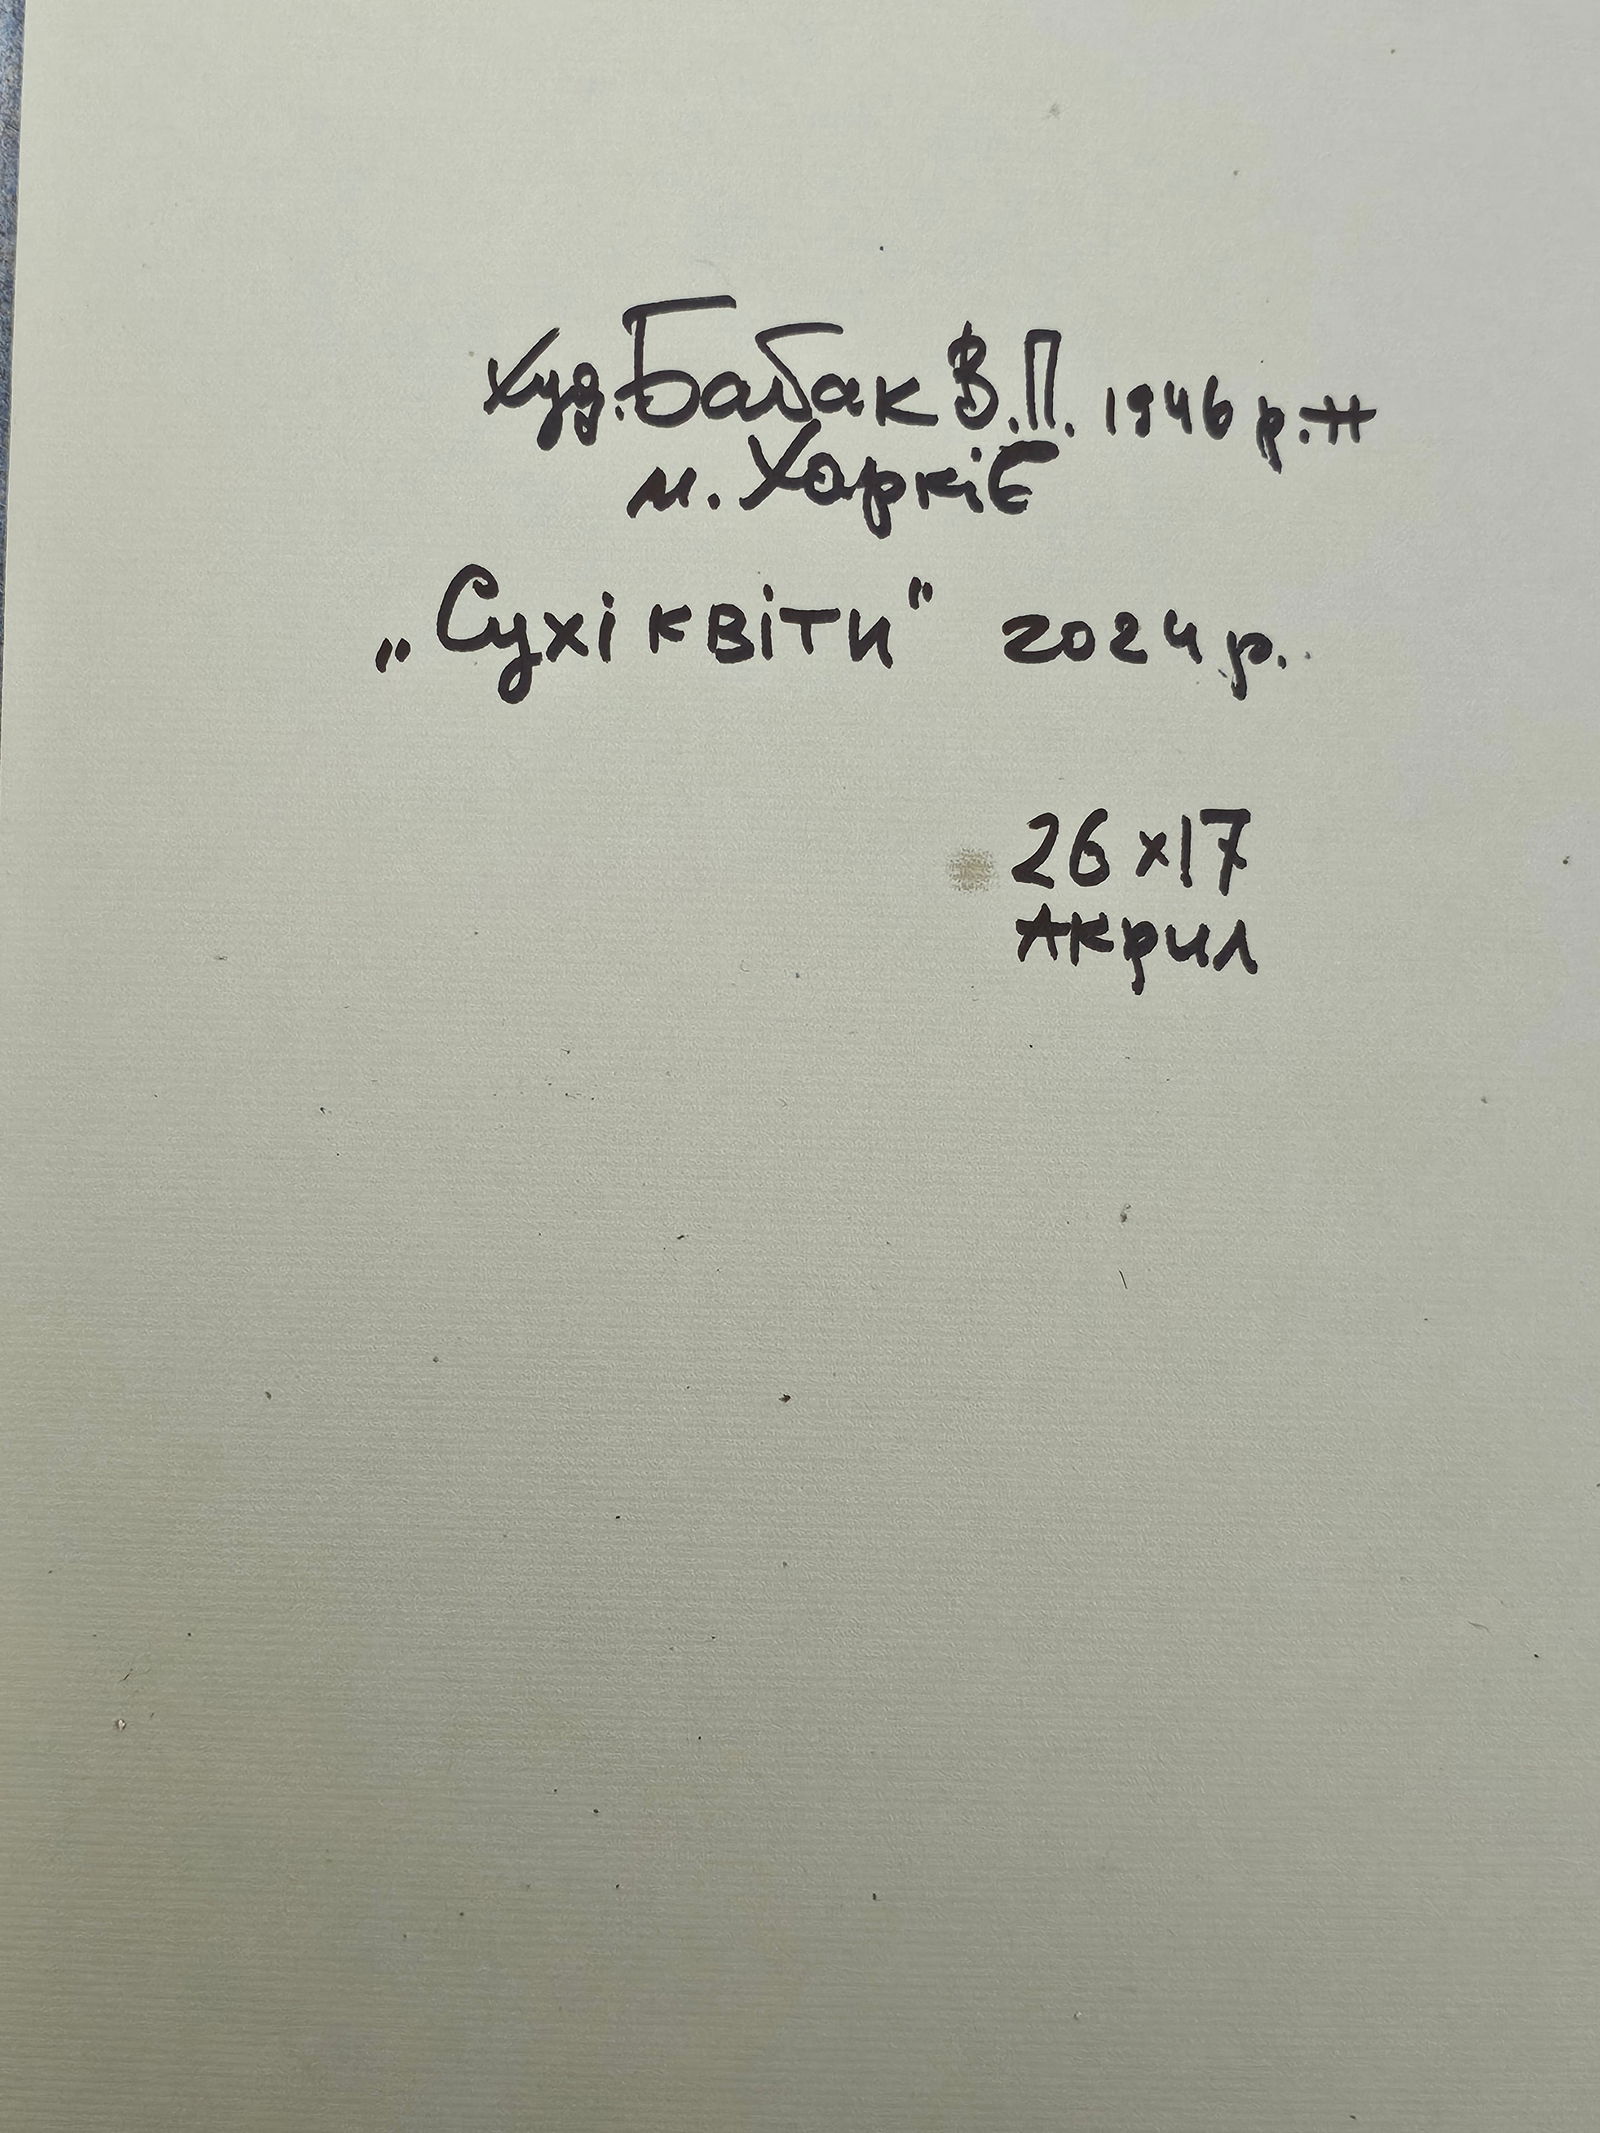 худ. Бабак В.П. 1946 р.н
м. Харків
„Сухі квіти" 2024 р.
26x17
Акрил